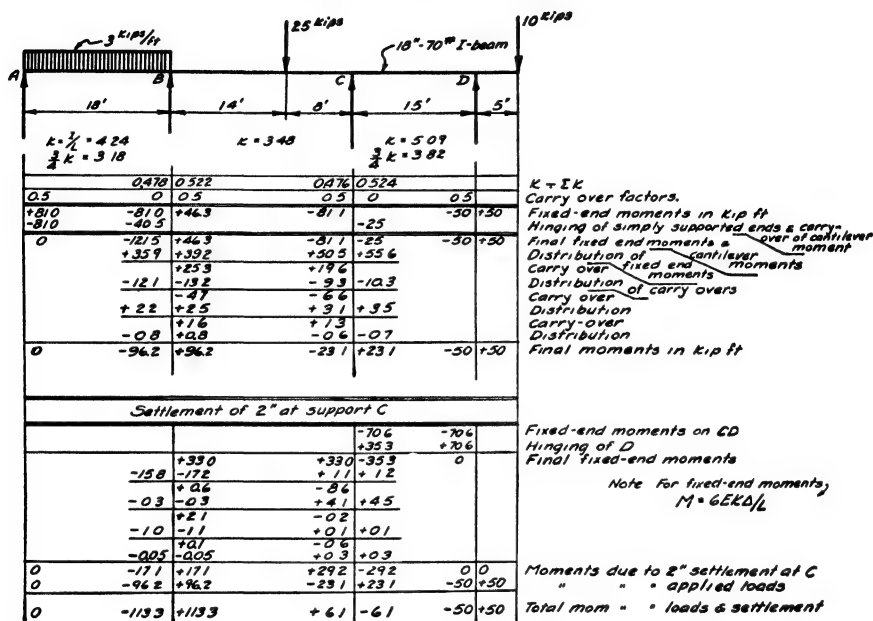 3 Kips/ft
25 Kips
10 Kips
18"-70# I-beam
A B C D
18' 14' 8' 15' 5'
K = I/L = 4.24 K = 3.48 K = 5.09
3/4 K = 3.18 3/4 K = 3.82
0.478 0.522 0.476 0.524 K ÷ ΣK
0.5 0 0.5 0.5 0 0.5 Carry over factors.
+81.0 -81.0 +46.3 -81.1 -50 +50 Fixed-end moments in Kip ft
-81.0 -40.5 -25 Hinging of simply supported ends & carry-over of cantilever moment
0 -121.5 +46.3 -81.1 -25 -50 +50 Final fixed end moments & cantilever moments
+35.9 +39.2 +50.5 +55.6 Distribution of fixed end moments
+25.3 +19.6 Carry over
-12.1 -13.2 -9.3 -10.3 Distribution of carry overs
-4.7 -6.6 Carry over
+2.2 +2.5 +3.1 +3.5 Distribution
+1.6 +1.3 Carry-over
-0.8 +0.8 -0.6 -0.7 Distribution
0 -96.2 +96.2 -23.1 +23.1 -50 +50 Final moments in Kip ft
Settlement of 2" at support C
-70.6 -70.6 Fixed-end moments on CD
+35.3 +70.6 Hinging of D
+33.0 +33.0 -35.3 0 Final fixed-end moments
-15.8 -17.2 +1.1 +1.2
+0.6 -8.6
-0.3 -0.3 +4.1 +4.5
+2.1 -0.2
-1.0 -1.1 +0.1 +0.1
+0.1 -0.6
-0.05 -0.05 +0.3 +0.3
Note For fixed-end moments,
M = 6EKΔ/L
0 -17.1 +17.1 +29.2 -29.2 0 0 Moments due to 2" settlement at C
0 -96.2 +96.2 -23.1 +23.1 -50 +50 " " " applied loads
0 -113.3 +113.3 +6.1 -6.1 -50 +50 Total mom " " loads & settlement